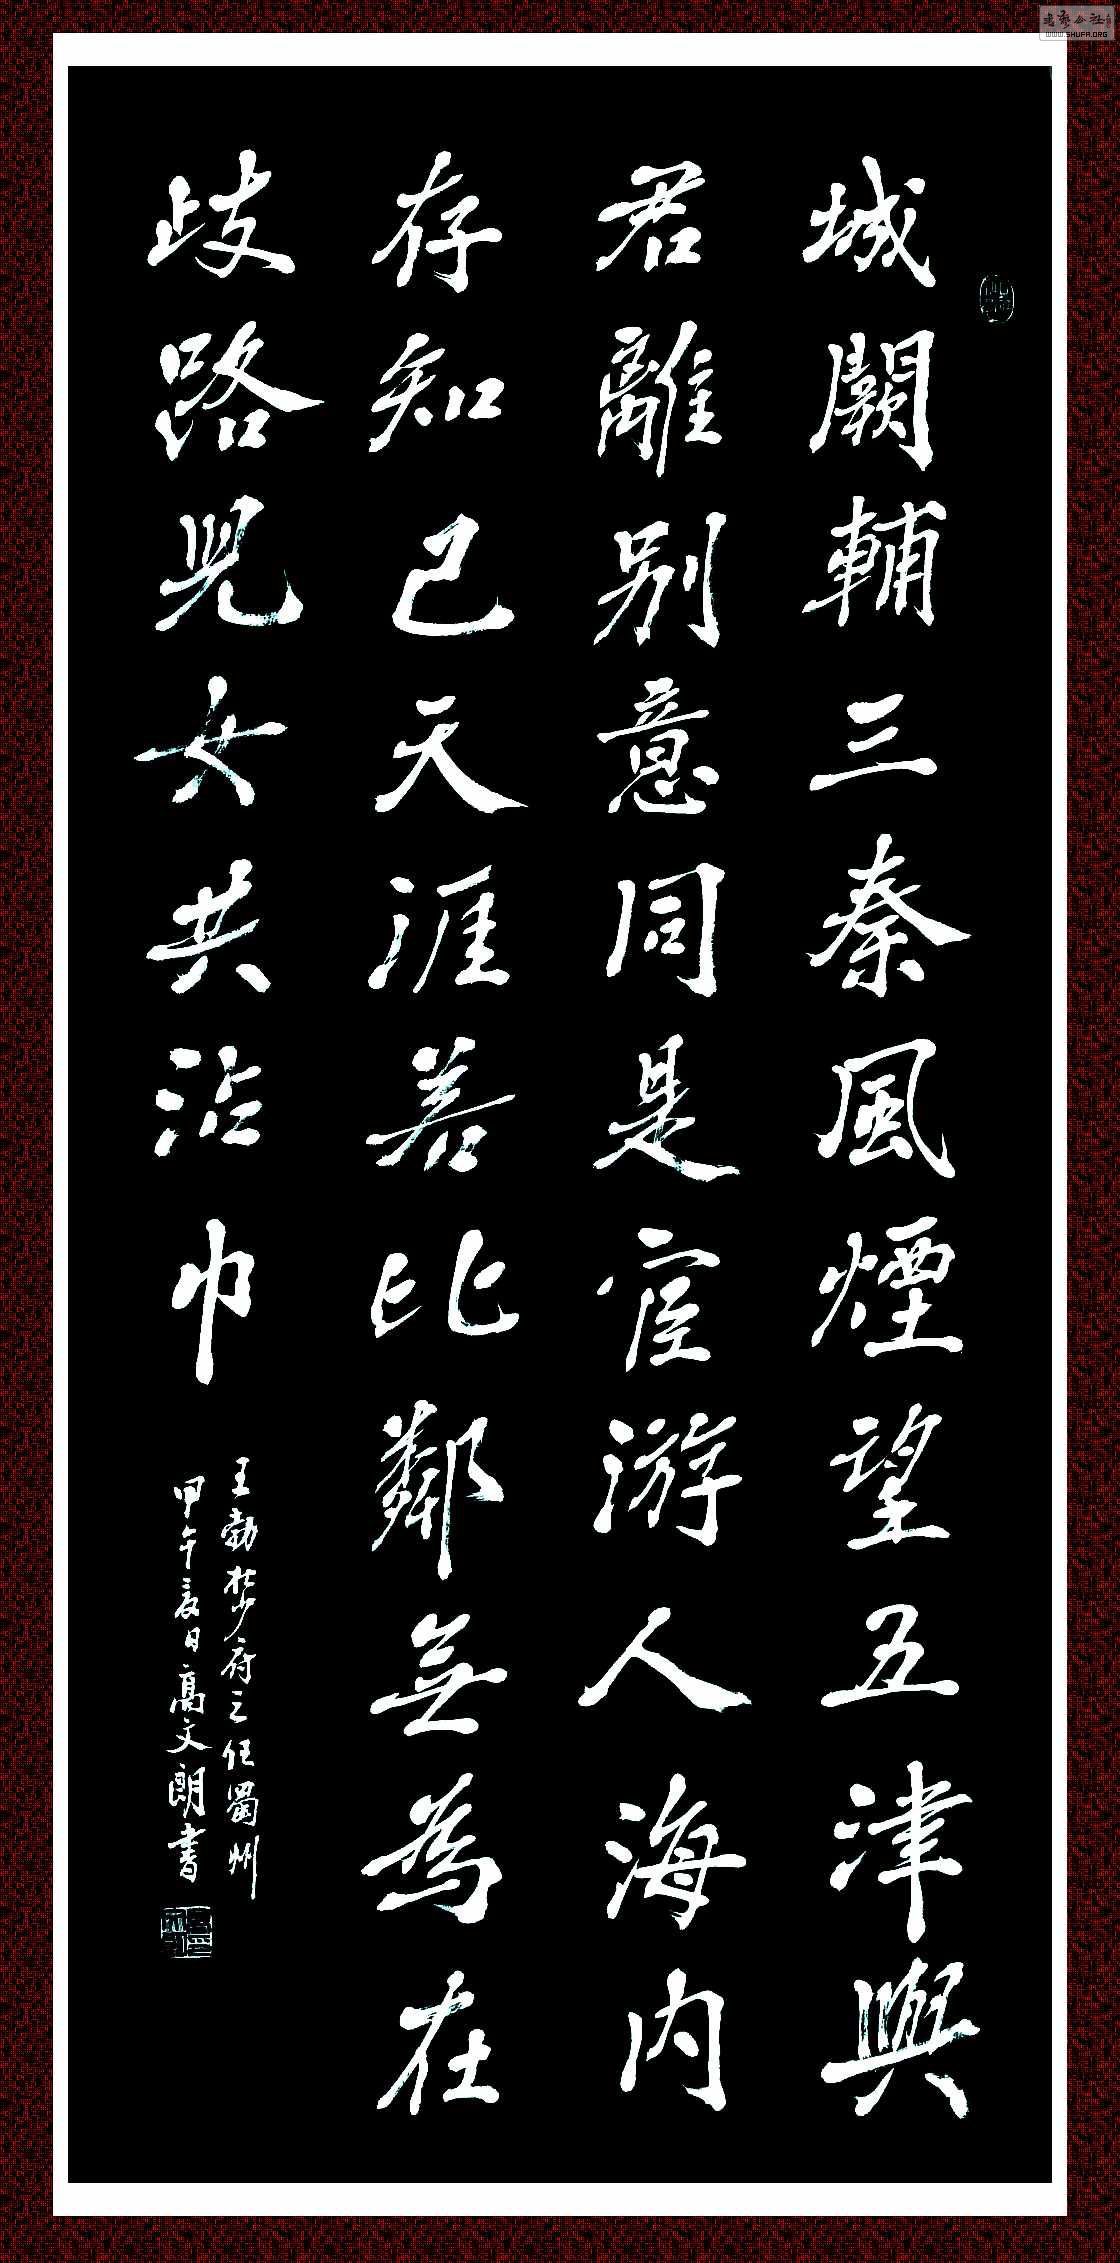 城闕輔三秦風煙望五津與
君離別意同是宦游人海內
存知己天涯若比鄰無為在
歧路兒女共沾巾
王勃杜少府之任蜀州
甲午夏日高文朗書
書藝公社
WWW.SHUFA.ORG